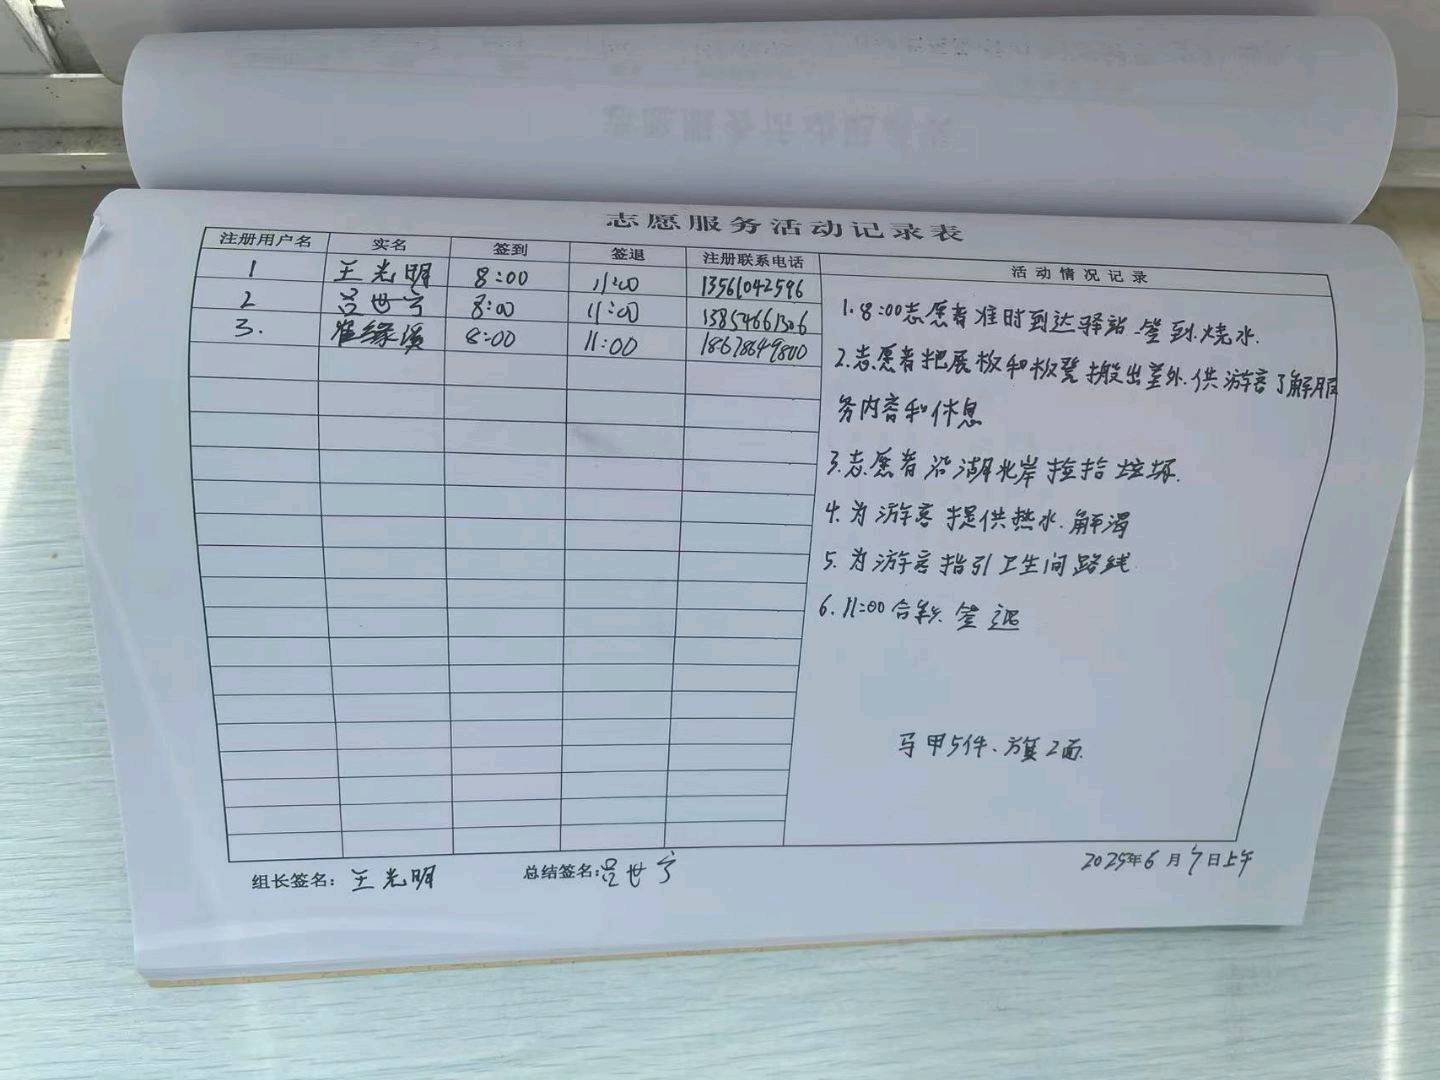 志愿服务活动记录表
注册用户名 实名 签到 签退 注册联系电话 活动情况记录
1 王光明 8:00 11:00 13561042596
2 吕世宁 8:00 11:00 13854661306
3. 崔缘溪 8:00 11:00 18678649800
1. 8:00志愿者准时到达驿站.签到.烧水.
2.志愿者把展板和板凳搬出室外.供游客了解服
务内容和休息
3.志愿者沿湖北岸捡拾垃圾.
4.为游客提供热水.解渴
5.为游客指引卫生间路线
6.11:00合影签退
马甲5件、旗2面.
组长签名: 王光明 总结签名: 吕世宁 2025年6月7日上午